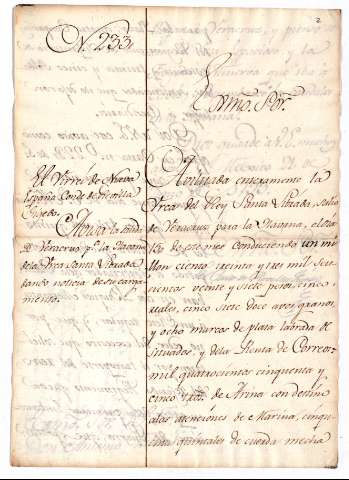 2
N. 233,
Exmo. Sor.
El Virrey de Nueva
España Conde de Revilla
Gigedo.
Avisa la salida
de Veracruz pa. la Havana
de la Urca Santa Librada
dando noticia de su carga-
mento.
Avilitada enteramente la
Urca del Rey Santa Librada, salio
de Veracruz para la Havana, el dia
de este mes conduciendo un mi-
llon ciento treinta y tres mil sete-
cientos veinte y siete pesos cinco
rrales, cinco siete doce avos granos,
y ocho marcos de plata labrada de
Situados, y dela Renta de Correos:
mil quatrocientos cinquenta y
cinco de Arina con destino
alas atenciones de Marina, cinqu-
enta quintales de cuerda mecha